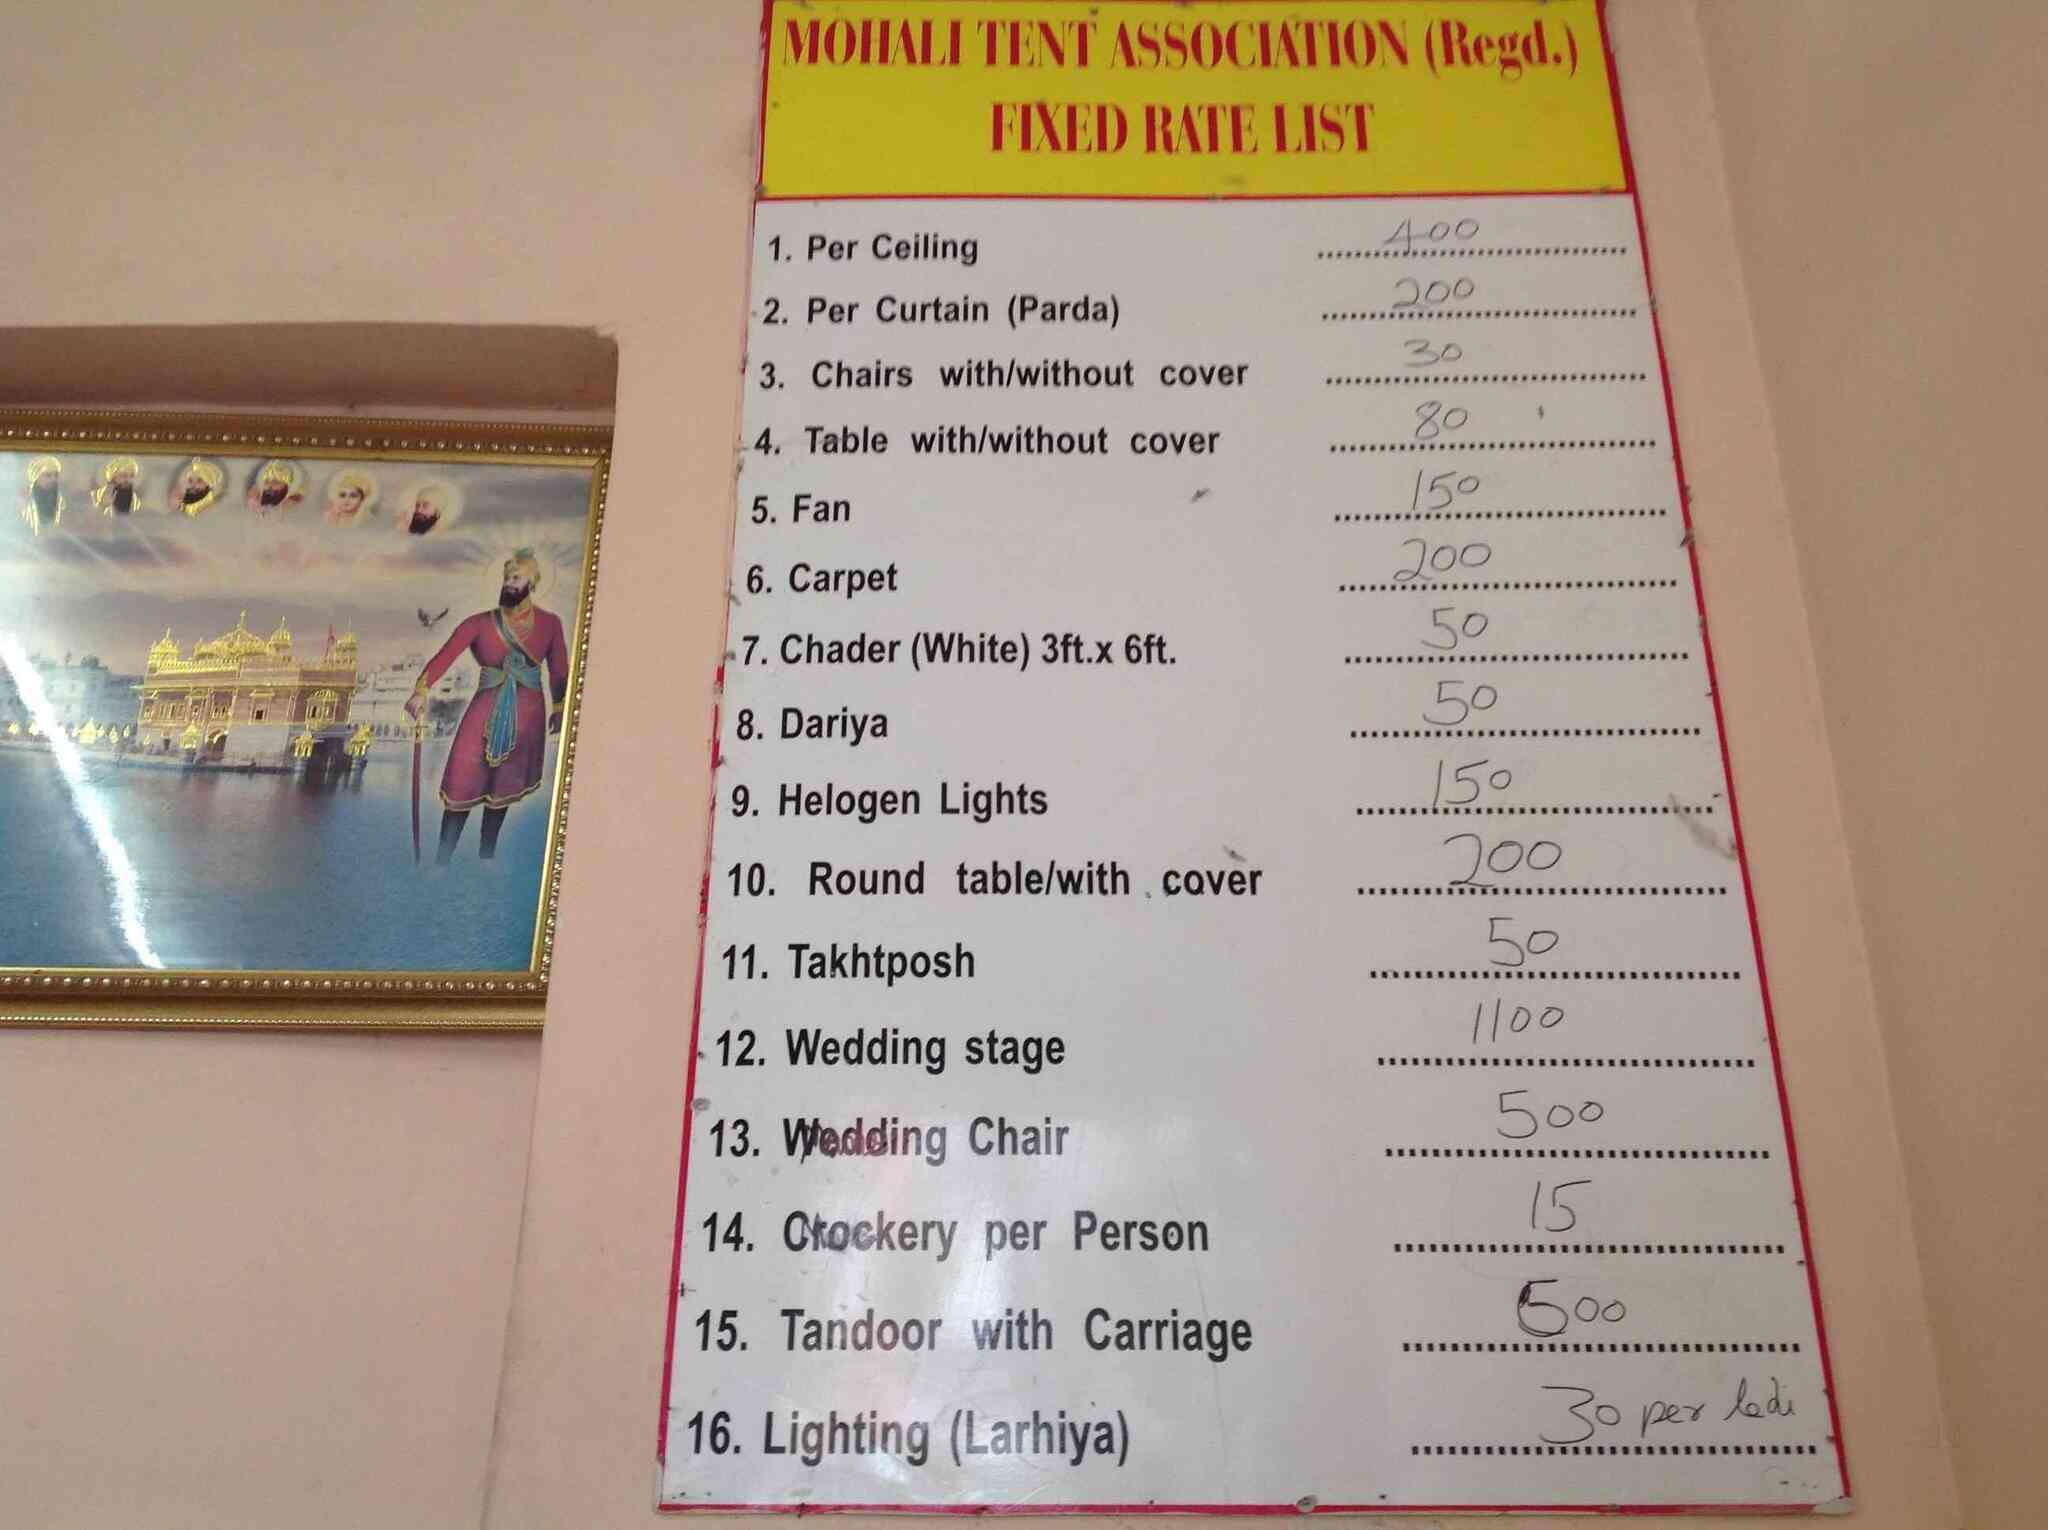 MOHALI TENT ASSOCIATION (Regd.)
FIXED RATE LIST
1. Per Ceiling ........ 400
2. Per Curtain (Parda) ........ 200
3. Chairs with/without cover ........ 30
4. Table with/without cover ........ 80
5. Fan ........ 150
6. Carpet ........ 200
7. Chader (White) 3ft.x 6ft. ........ 50
8. Dariya ........ 50
9. Helogen Lights ........ 150
10. Round table/with cover ........ 200
11. Takhtposh ........ 50
12. Wedding stage ........ 1100
13. Wedding Chair ........ 500
14. Crockery per Person ........ 15
15. Tandoor with Carriage ........ 500
16. Lighting (Larhiya) ........ 30 per ladi